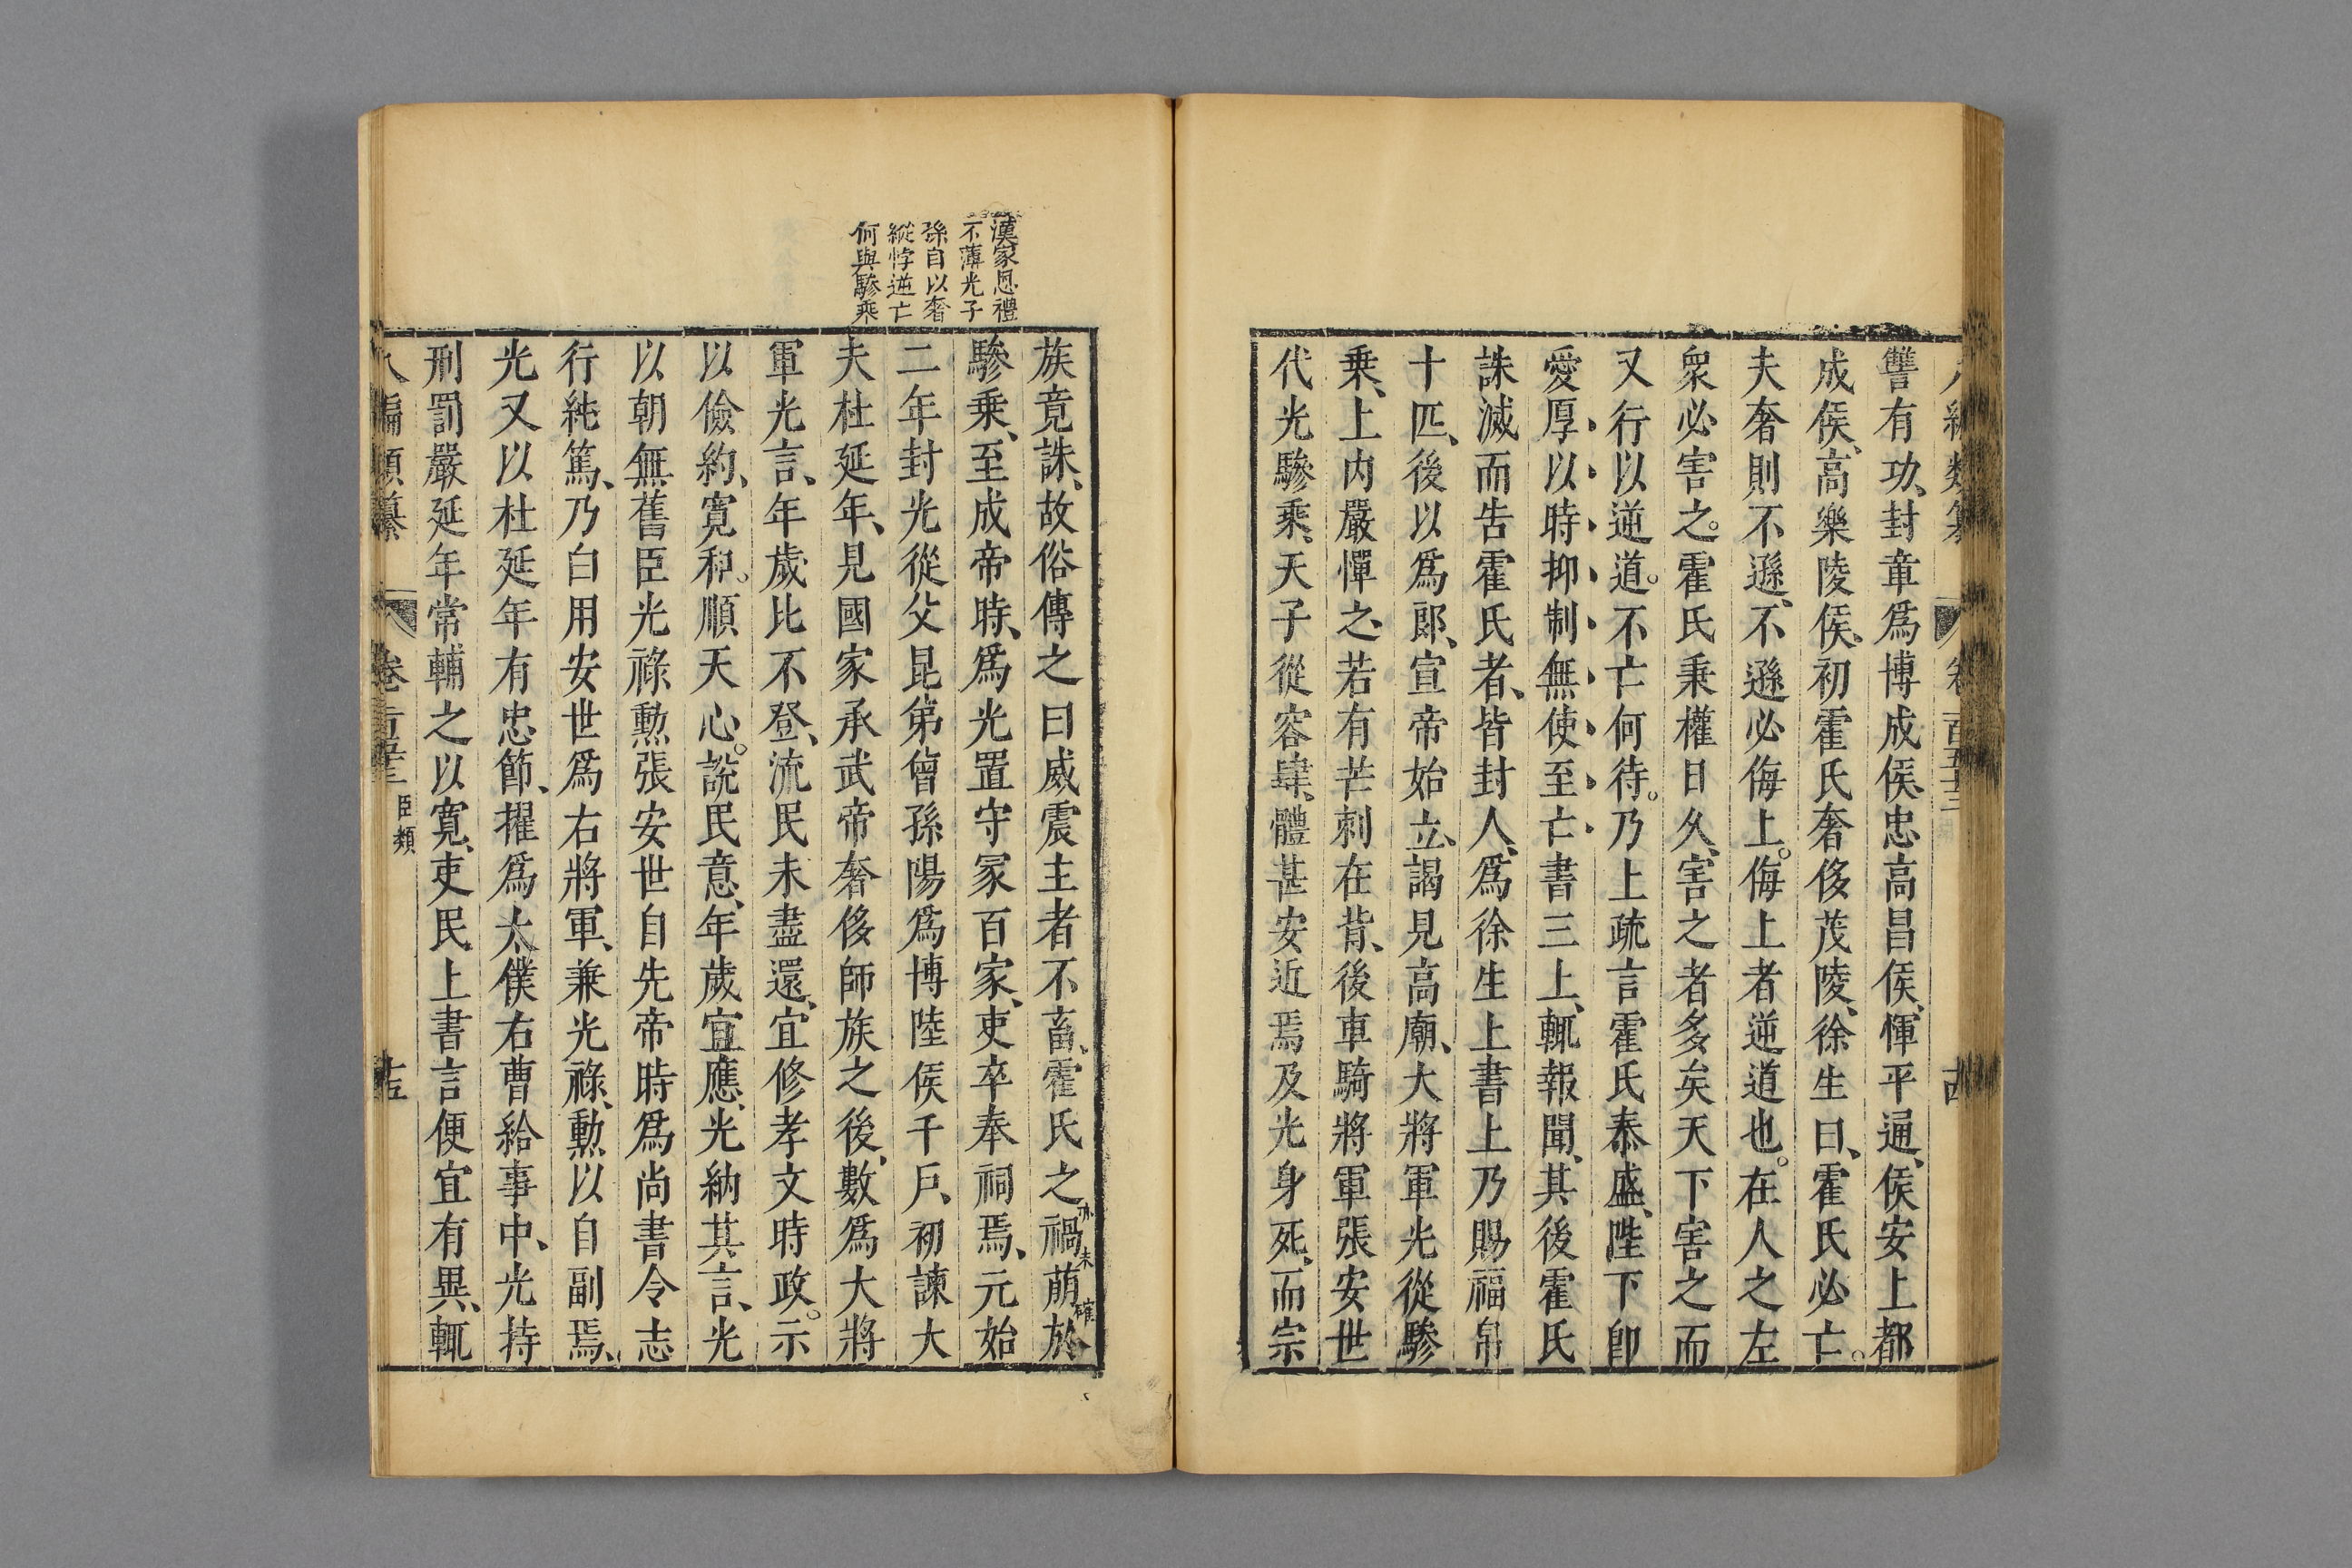 讐有功、封章爲博成侯、忠高昌侯、惲平通、侯安上都
成侯、高樂陵侯、初霍氏奢侈、茂陵徐生曰、霍氏必亡。
夫奢則不遜、不遜必侮上。侮上者逆道也。在人之左
衆必害之。霍氏秉權日久、害之者多矣天下害之而
又行以逆道。不亡何待。乃上疏言霍氏泰盛、陛下卽
愛厚、以時抑制無使至亡書三上、輒報聞、其後霍氏
誅滅而告霍氏者、皆封人、爲徐生上書上乃賜福帛
十匹、後以爲郎、宣帝始立、謁見高廟、大將軍光從驂
乗、上内嚴憚之、若有芒刺在背、後車騎將軍張安世
代光驂乘、天子從容肆、體甚安近焉及光身死、而宗
漢家恩禮
不薄光子
孫自以奢
縱悖逆亡
何與驂乘
族竟誅、故俗傳之曰威震主者不畜、霍氏之禍萌於
驂乘、至成帝時、爲光置守冢百家、吏卒奉祠焉、元始
二年封光從父昆弟曾孫陽爲博陸侯千戶、初諫大
夫杜延年、見國家承武帝奢侈師旅之後、數爲大將
軍光言、年歲比不登、流民未盡還、宜修孝文時政。示
以儉約、寬和。順天心。說民意、年歲宜應、光納其言、光
以朝無舊臣光祿勲張安世自先帝時爲尚書令志
行純篤、乃白用安世爲右將軍、兼光祿、勲以自副焉、
光又以杜延年有忠節、擢爲太僕右曹給事中、光持
刑罰嚴延年常輔之以寬、吏民上書言便宜有異、輒
八編類纂 卷一百五十三 臣類 十五